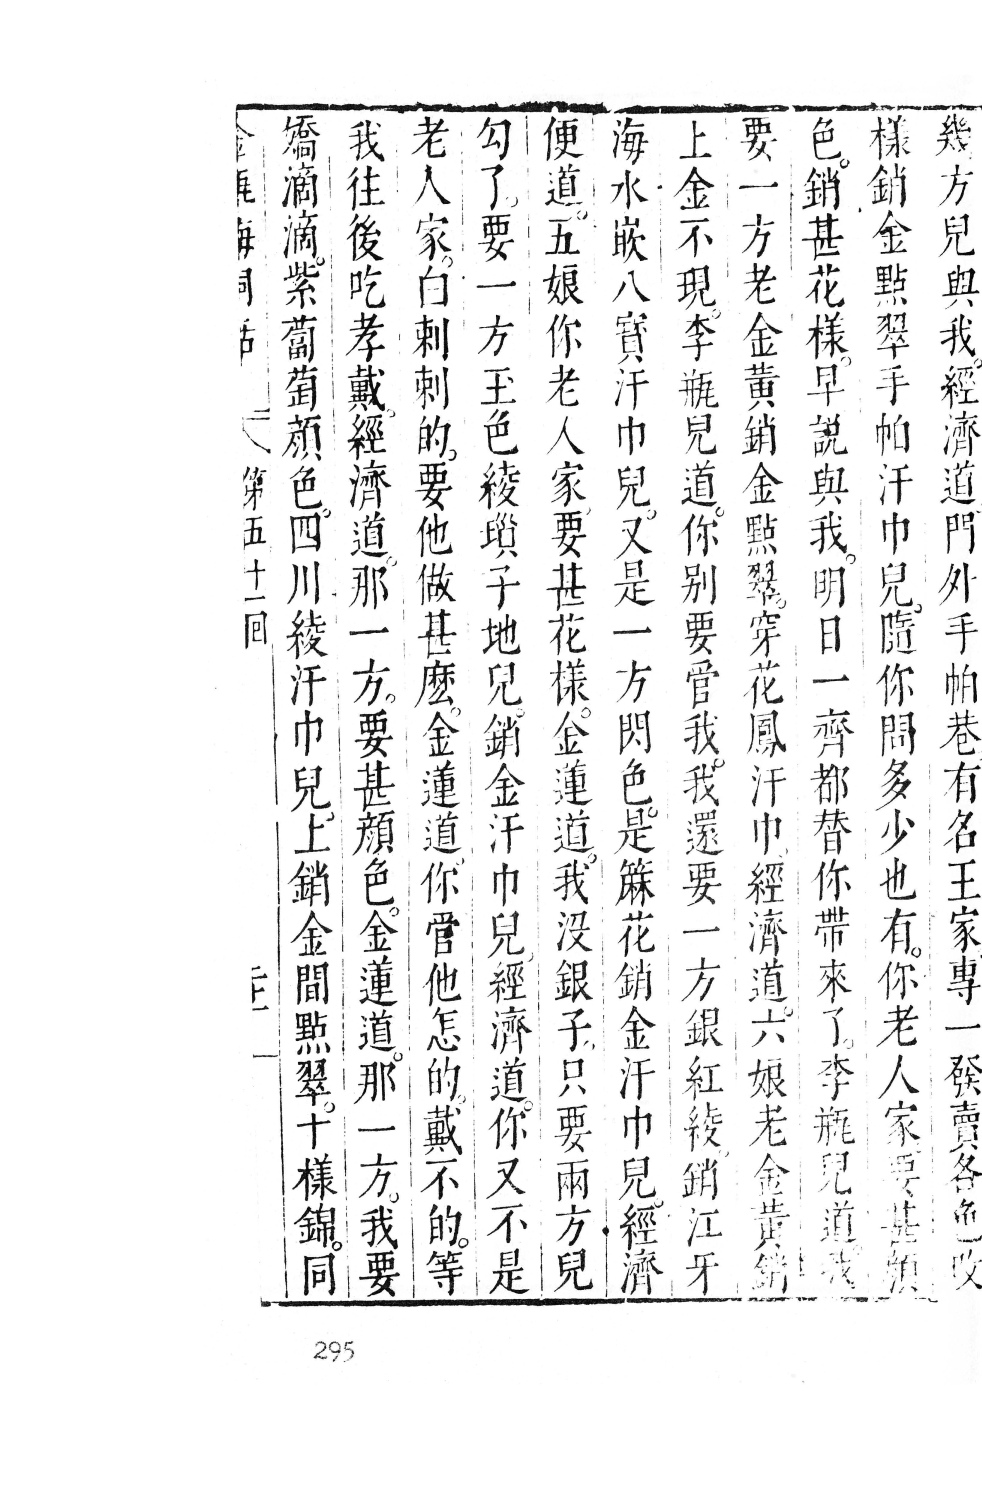 幾方兒與我。經濟道。門外手帕巷。有名王家。專一發賣各色改
樣銷金點翠手帕汗巾兒。隨你問多少也有。你老人家要甚顏
色。銷甚花樣。早說與我。明日一齊都替你帶來了。李瓶兒道。我
要一方老金黃銷金點翠。穿花鳳汗巾。經濟道。六娘老金黃銷
上金不現。李瓶兒道。你別要管我。我還要一方銀紅綾。銷江牙
海水嵌八寶汗巾兒。又是一方閃色。是蔴花銷金汗巾兒。經濟
便道。五娘你老人家。要甚花樣。金蓮道。我沒銀子。只要兩方兒
勾了。要一方玉色綾瑣子地兒。銷金汗巾兒。經濟道。你又不是
老人家。白剌剌的。要他做甚麼。金蓮道。你管他怎的。戴不的。等
我往後吃孝戴。經濟道。那一方。要甚顏色。金蓮道。那一方。我要
嬌滴滴。紫葡萄顏色。四川綾汗巾兒。上銷金間點翠。十樣錦。同
金瓶梅詞話 第五十一回
295